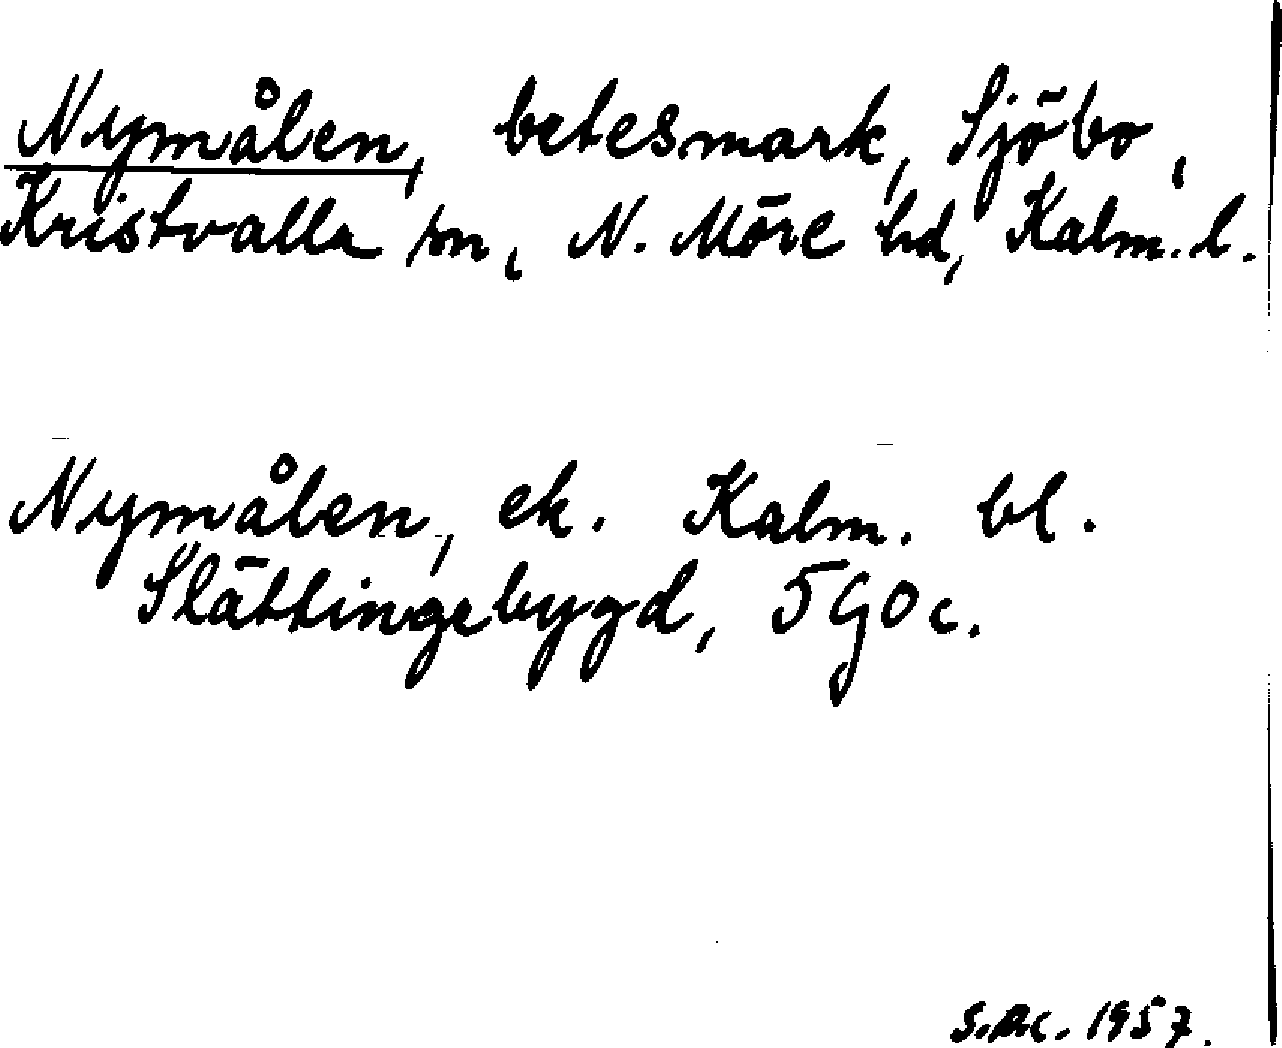 Nymålen, betesmark, Sjöbo,
Kristvalla sn, N. Möre hd, Kalm. l.
Nymålen, ek. Kalm. bl.
Slättingebygd, 5G0c.
1957.